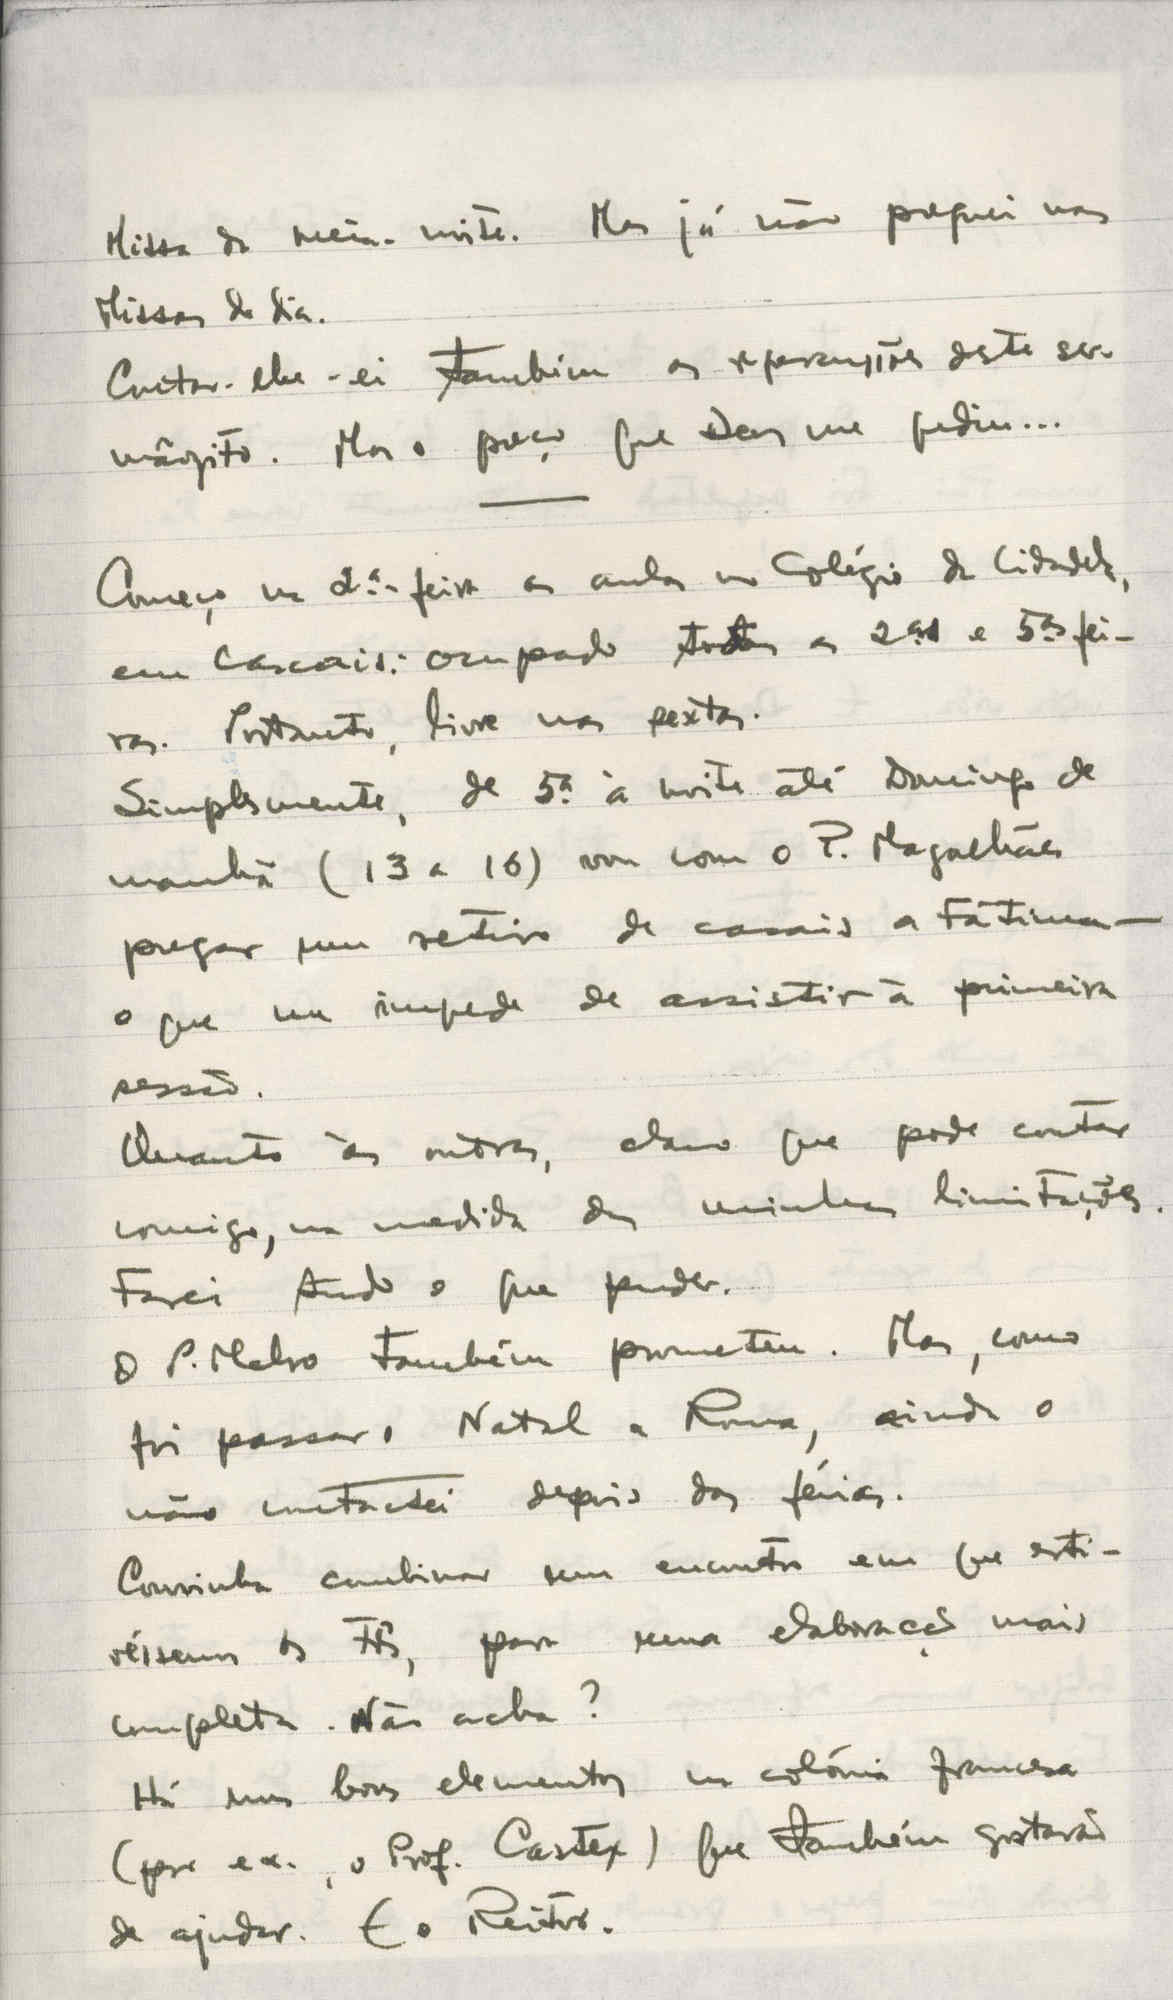 Missa da meia-noite. Mas já não preguei nas
Missas do dia.
Contar-lhe-ei também as repercussões deste ser-
mãozito. Mas o preço que Deus me pediu...
Começo na 2ª-feira as aulas no Colégio da Cidadela,
em Cascais: ocupado todas as 2ªs e 5ªs fei-
ras. Portanto, livre nas sextas.
Simplesmente, de 5ª à noite até Domingo de
manhã (13 a 16) vou com o P. Magalhães
pregar um retiro de casais a Fátima —
o que me impede de assistir à primeira
sessão.
Quanto às outras, claro que pode contar
comigo, na medida das minhas limitações.
Farei tudo o que puder.
O P. Melro também prometeu. Mas, como
foi passar o Natal a Roma, ainda o
não contactei depois das férias.
Convinha combinar um encontro em que esti-
véssemos os três, para uma elaboração mais
completa. Não acha?
Há uns bons elementos na colónia francesa
(por ex., o Prof. Castex) que também gostarão
de ajudar. E o Reitor.